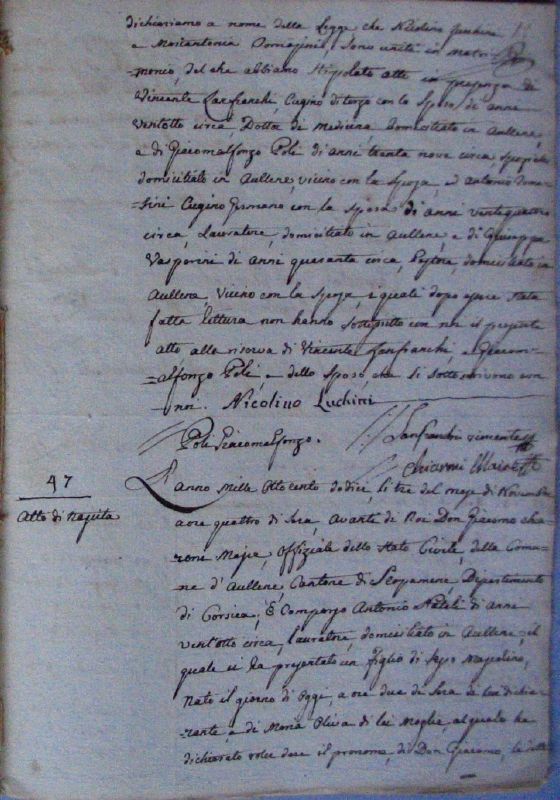 dichiariamo a nome della Legge che Nicolino Luchini
e Mariantonia Domagini, sono uniti in Matri-
=monio, del che abbiamo stipolato atto in presenza di
Vincente Lanfranchi, Cugino di terzo con lo Sposo di anni
ventotto circa, Dottor de Medicina domiciliato in Aullene,
e di Giacomalfonzo Poli di anni trenta nove circa,
domiciliato in Aullene, vicino con la sposa, ed Antonio
Cugino Germano con la sposa di anni ventiquattro
circa, Lauratore, domiciliato in Aullene, e di Giuseppe
Vasporini di anni quaranta circa, Pastore, domiciliato in
Aullene, Vicino con la sposa, i quali dopo essere stata
fatta lettura non hanno sottoscritto con noi il presente
atto alla riserva di Vincente Lanfranchi, e Giacom-
=alfonzo Poli, e dello Sposo, che si sottoscrivono con
noi. Nicolino Luchini
Poli Giacomalfonzo. Lanfranchi vincente
Chiaroni Maire
47
Atto di Nascita
L'anno Mille Otto cento dodici, li tre del mese di Novembre
a ore quattro di sera, avante di Noi Don Giacomo Chia-
roni Maire, Offiziale dello Stato Civile, della Comu-
ne d'Aullene, Cantone di Scopamene Dipartimento
di Corsica, È Comparso Antonio di anni
vent'otto circa, Lauratore, domiciliato in Aullene, il
quale ci ha presentato un figlio di sesso Mascolino,
Nato il giorno di oggi, a ore due di sera di lui dichia-
rante, e di Maria Oliva di lui Moglie, al quale ha
dichiarato voler dare il pronome, di Don Giacomo, le dette